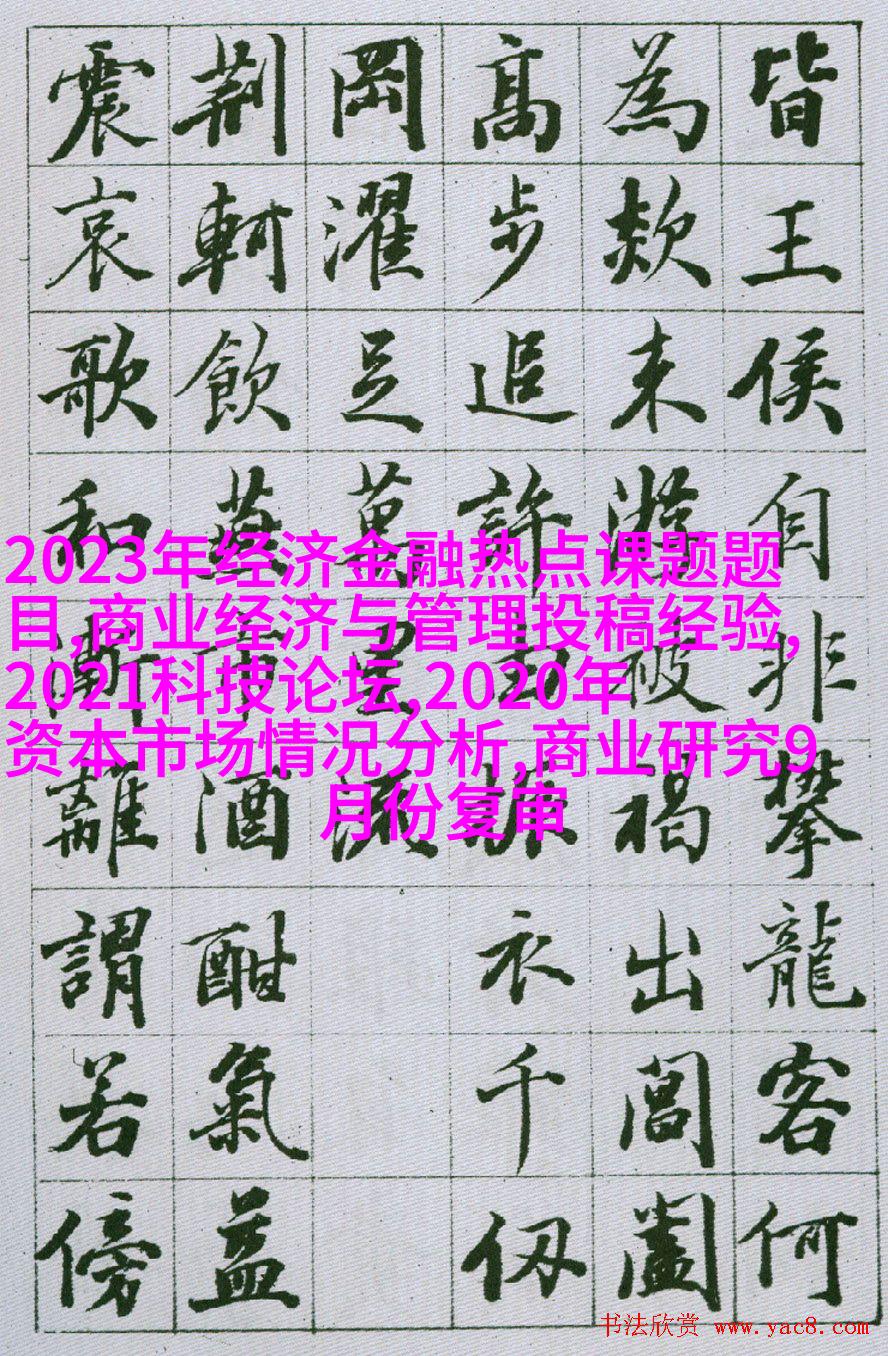 皆王侯自非攀龍客何
為欻来游被褐出閶闔
高步追許由振衣千仞
岡濯足萬里流
荆軻飲燕市酒酣氣益
震哀歌和漸離謂若傍
2023年经济金融热点课题题
目,商业经济与管理投稿经验,
2021科技论坛,2020年
资本市场情况分析,商业研究9
月份复审
书法欣赏 www.yac8.com